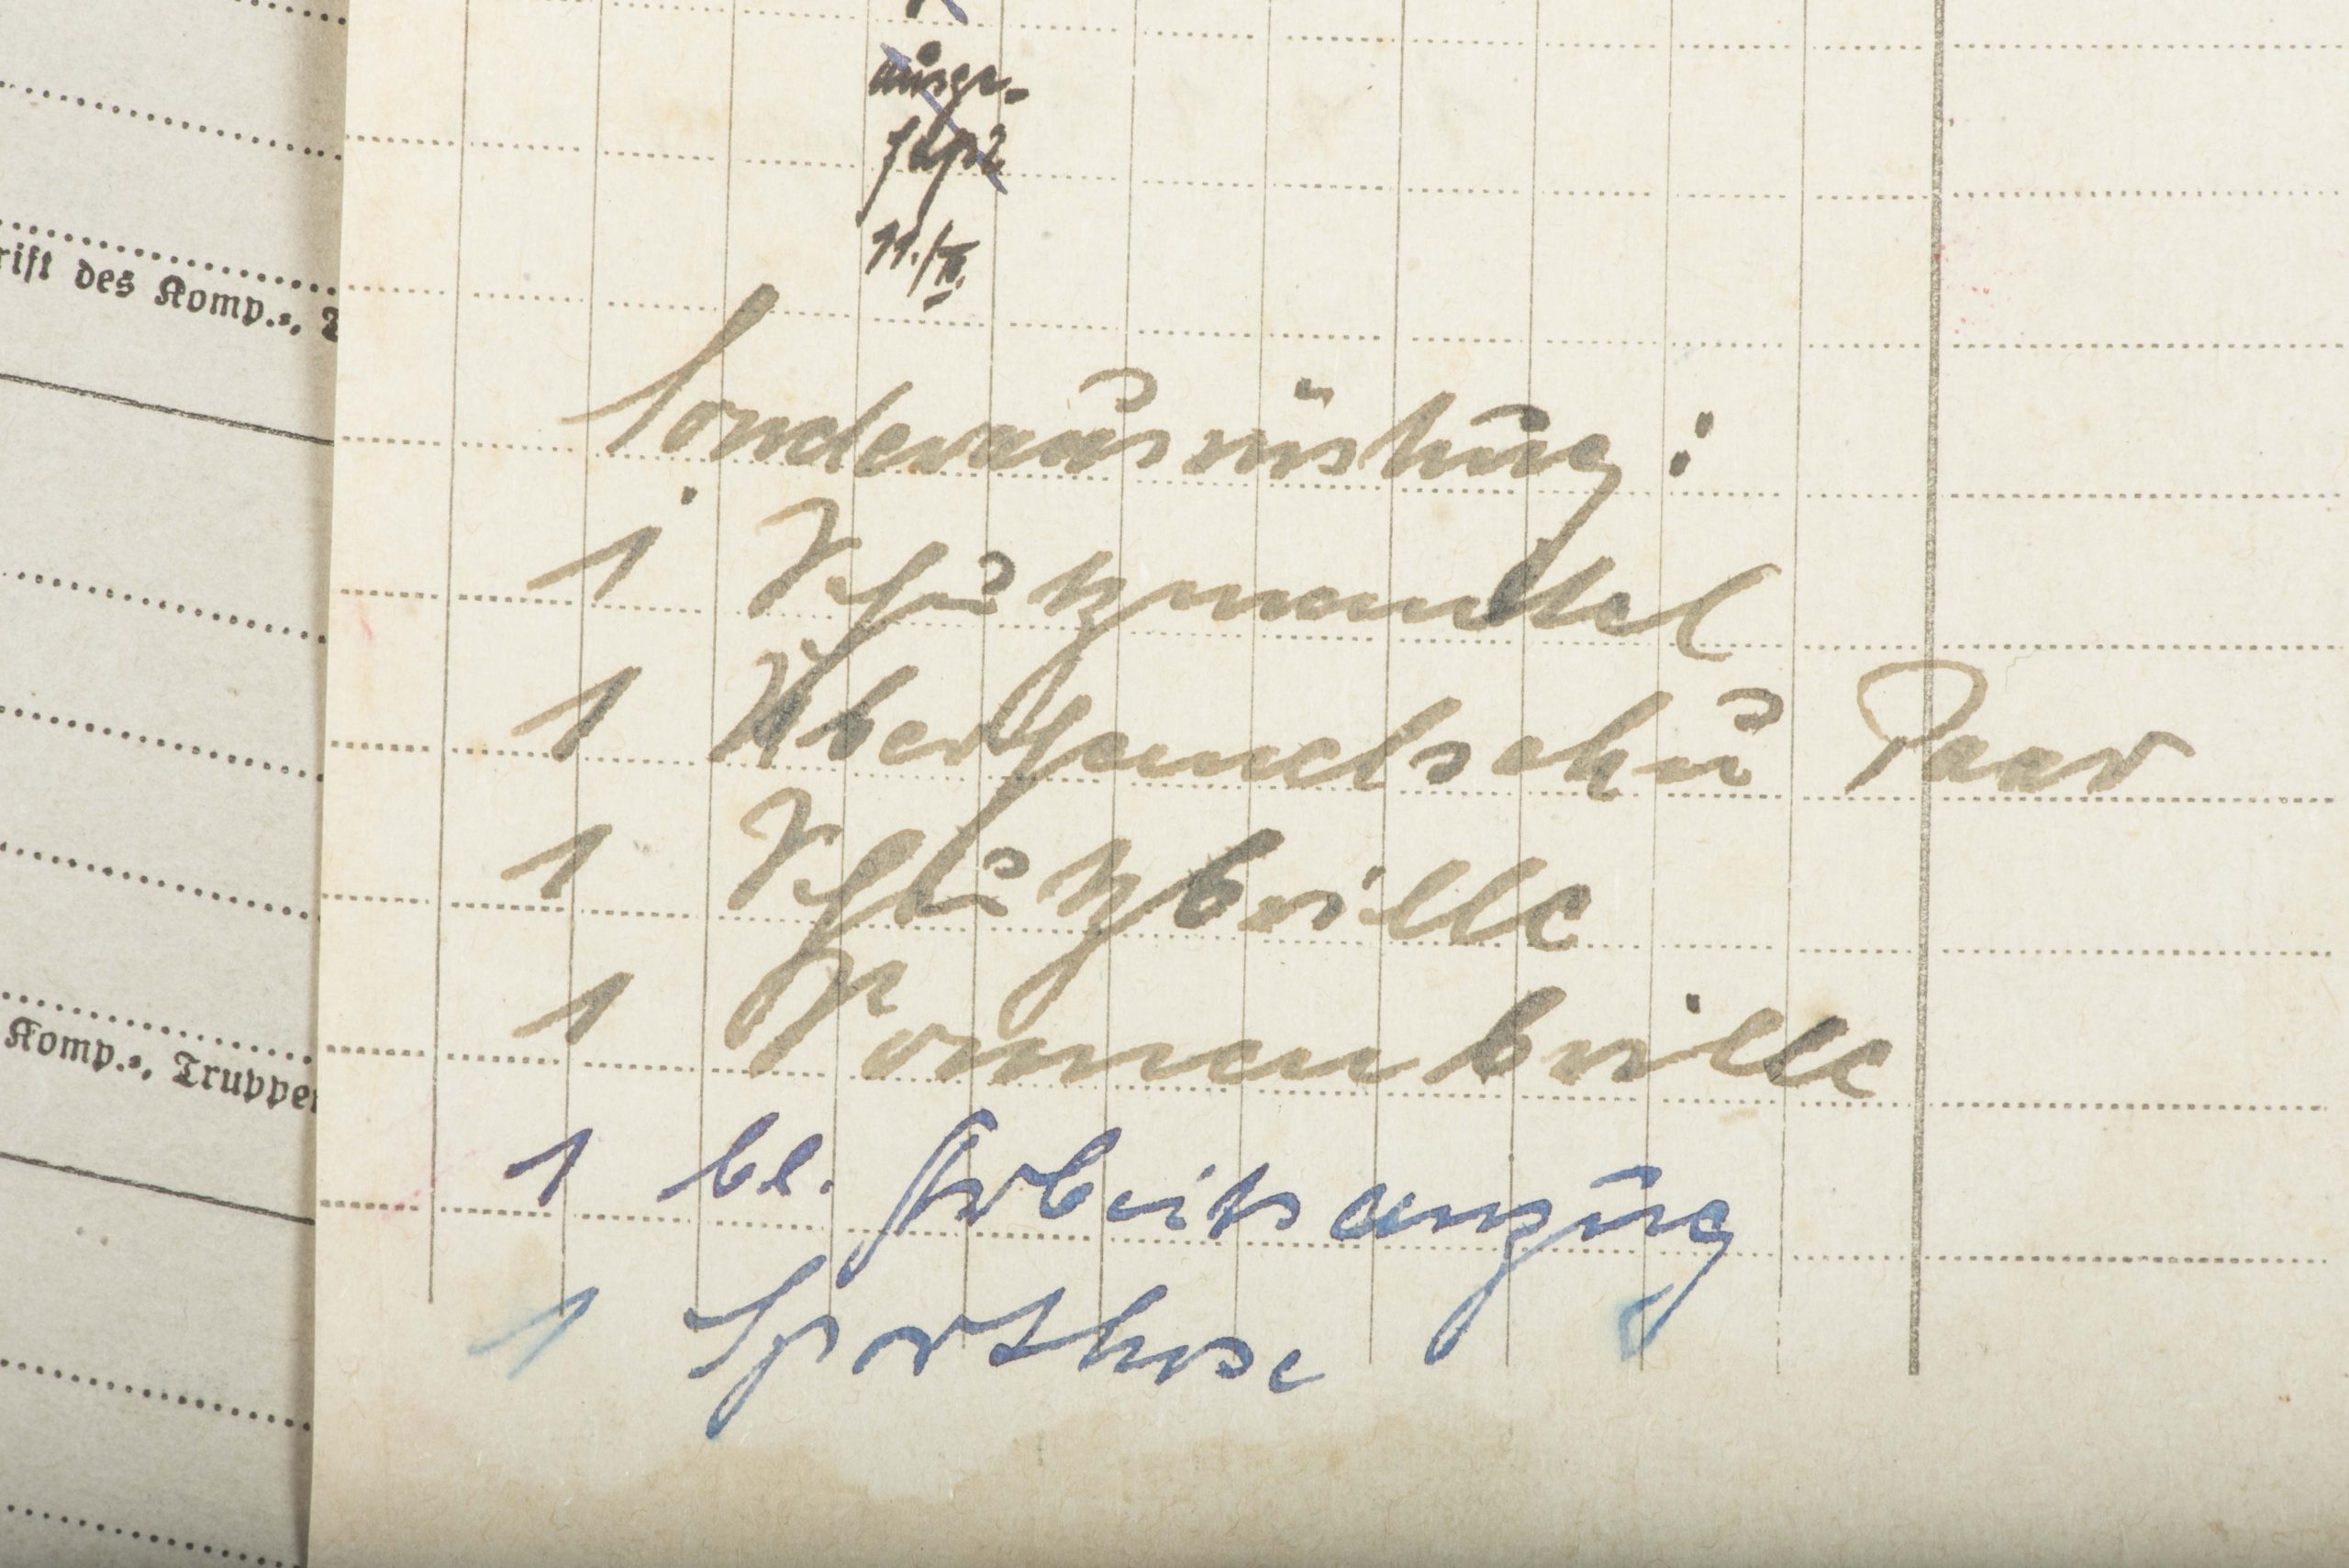 ausge-
11./II.
rift des Komp.-, T
Sonderausrüstung:
1 Schutzmantel
1 Überhandschu Paar
1 Schutzbrille
1 Sonnenbrille
Komp.-, Truppen
1 bl. Arbeitsanzug
1 Sporthose